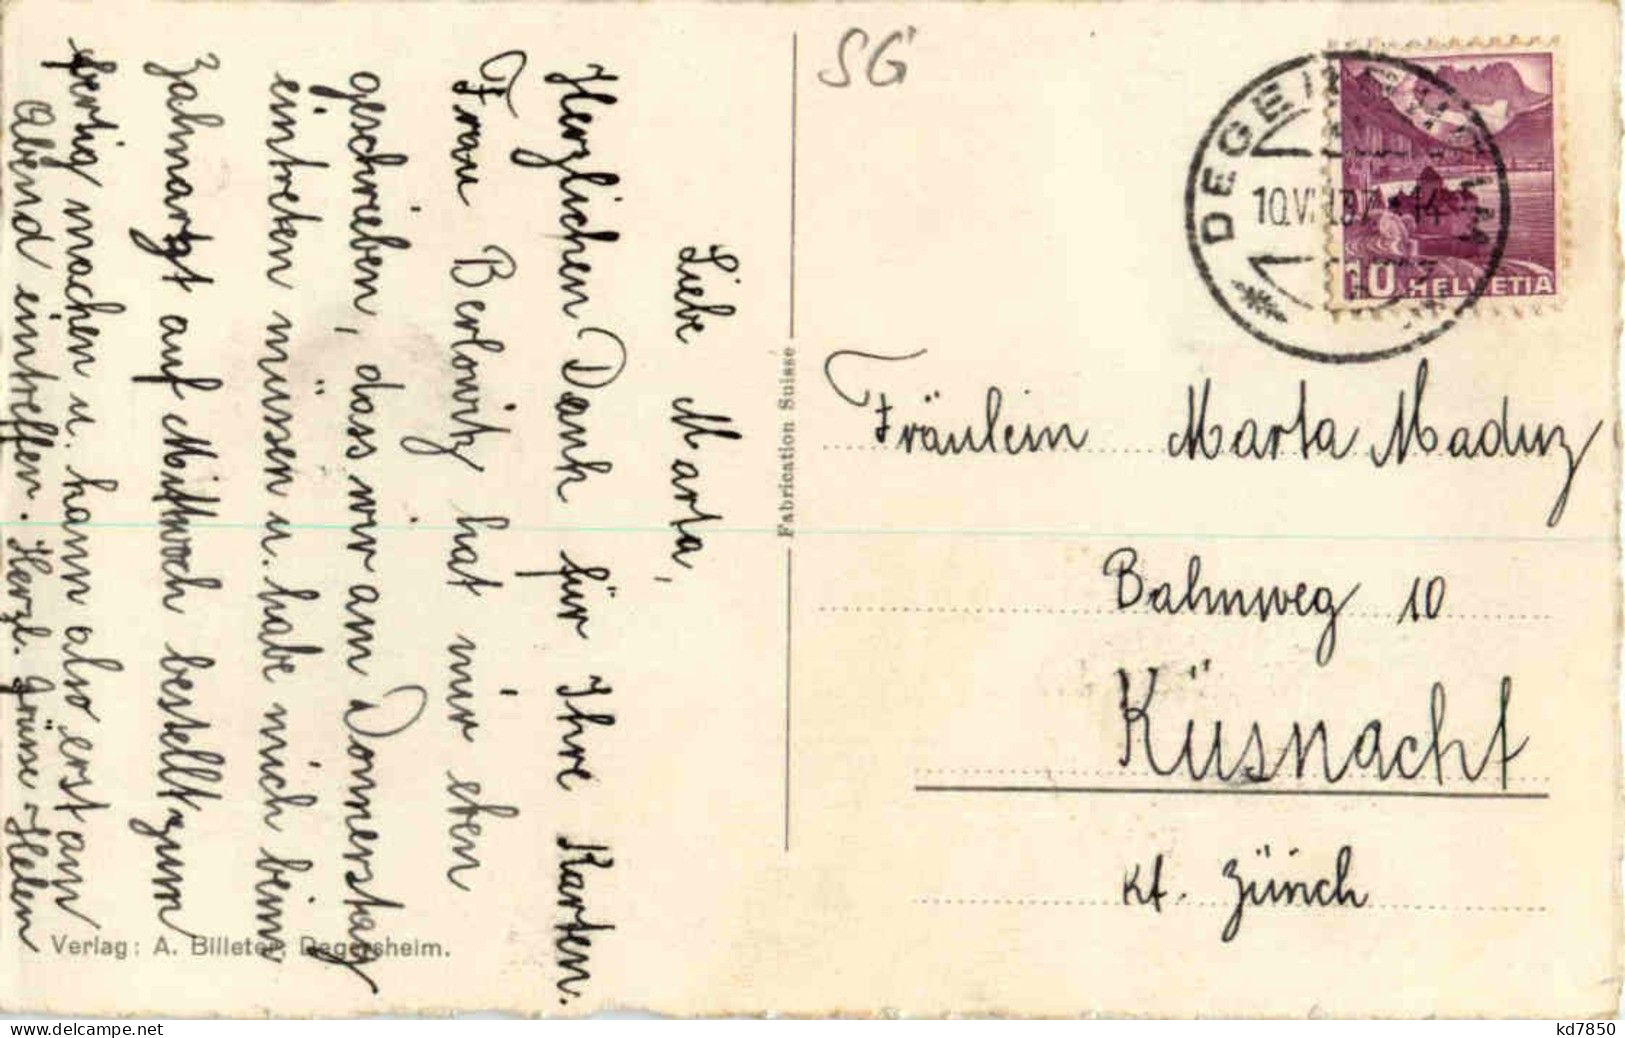 SG
DEGERSHEIM
10 HELVETIA
Liebe Marta,
Herzlichen Dank für Ihre Karten.
Frau Berlowitz hat mir eben
geschrieben, dass wir am Donnerstag
eintreten müssen u. habe mich beim
Zahnarzt auf Mittwoch bestellt zum
fertig machen u. kann also erst am
Abend eintreffen. Herzl. Grüsse - Helen
Verlag: A. Billeter, Degersheim.
Fabrication Suisse
Fräulein Marta Maduz
Bahnweg 10
Küsnacht
Kt. Zürich
delcampe.net
kd7850